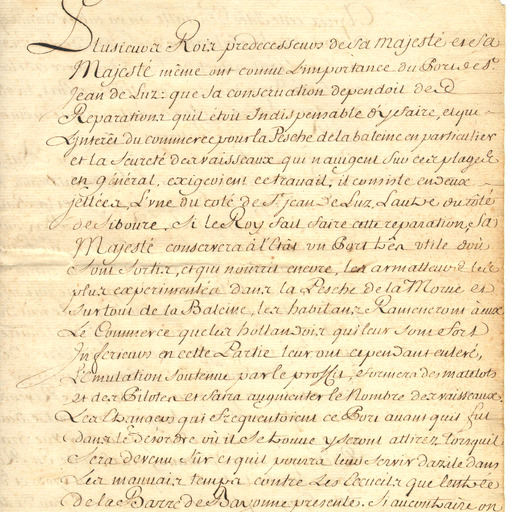 Plusieurs Rois predecesseurs de sa majesté et sa
Majesté même ont connu L'importance du Port de St.
Jean de Luz: que sa conservation dependoit des
Reparations qu'il etoit Indispensable d'y faire, et que
L'interêt du commerce pour la Pesche de la baleine en particulier
et la Seureté des vaisseaux qui navigent Sur ces plages
en général, exigeoient ce travail, il consiste en deux
jettées, L'une du coté de St. Jean de Luz, L'autre du côté
de Siboure. Si le Roy fait faire cette reparation, Sa
Majesté conservera à l'Etat un Port très utile d'où
Sont Sortis, et qui nourrit encore, les armateurs les
plus experimentés dans la Pesche de la Morue et
Surtout de la Baleine, les habitans Rameneront à eux
Le Commerce que les hollandois qui leur Sont fort
Inferieurs en cette Partie leur ont cependant enlevé,
L'emulation Soutenue par le proffit, formera des matelots
et des Pilotes et fera augmenter le Nombre des vaisseaux.
Les Etrangers qui frequentoient ce Port avant qu'il fut
dans le désordre où il Se trouve y seront attirez lorsqu'il
Sera devenu Sûr et qu'il pourra leur Servir d'azile dans
Les mauvais temps contre Les Ecueils que l'entrée
de la Barre de Bayonne presente. Si au contraire on